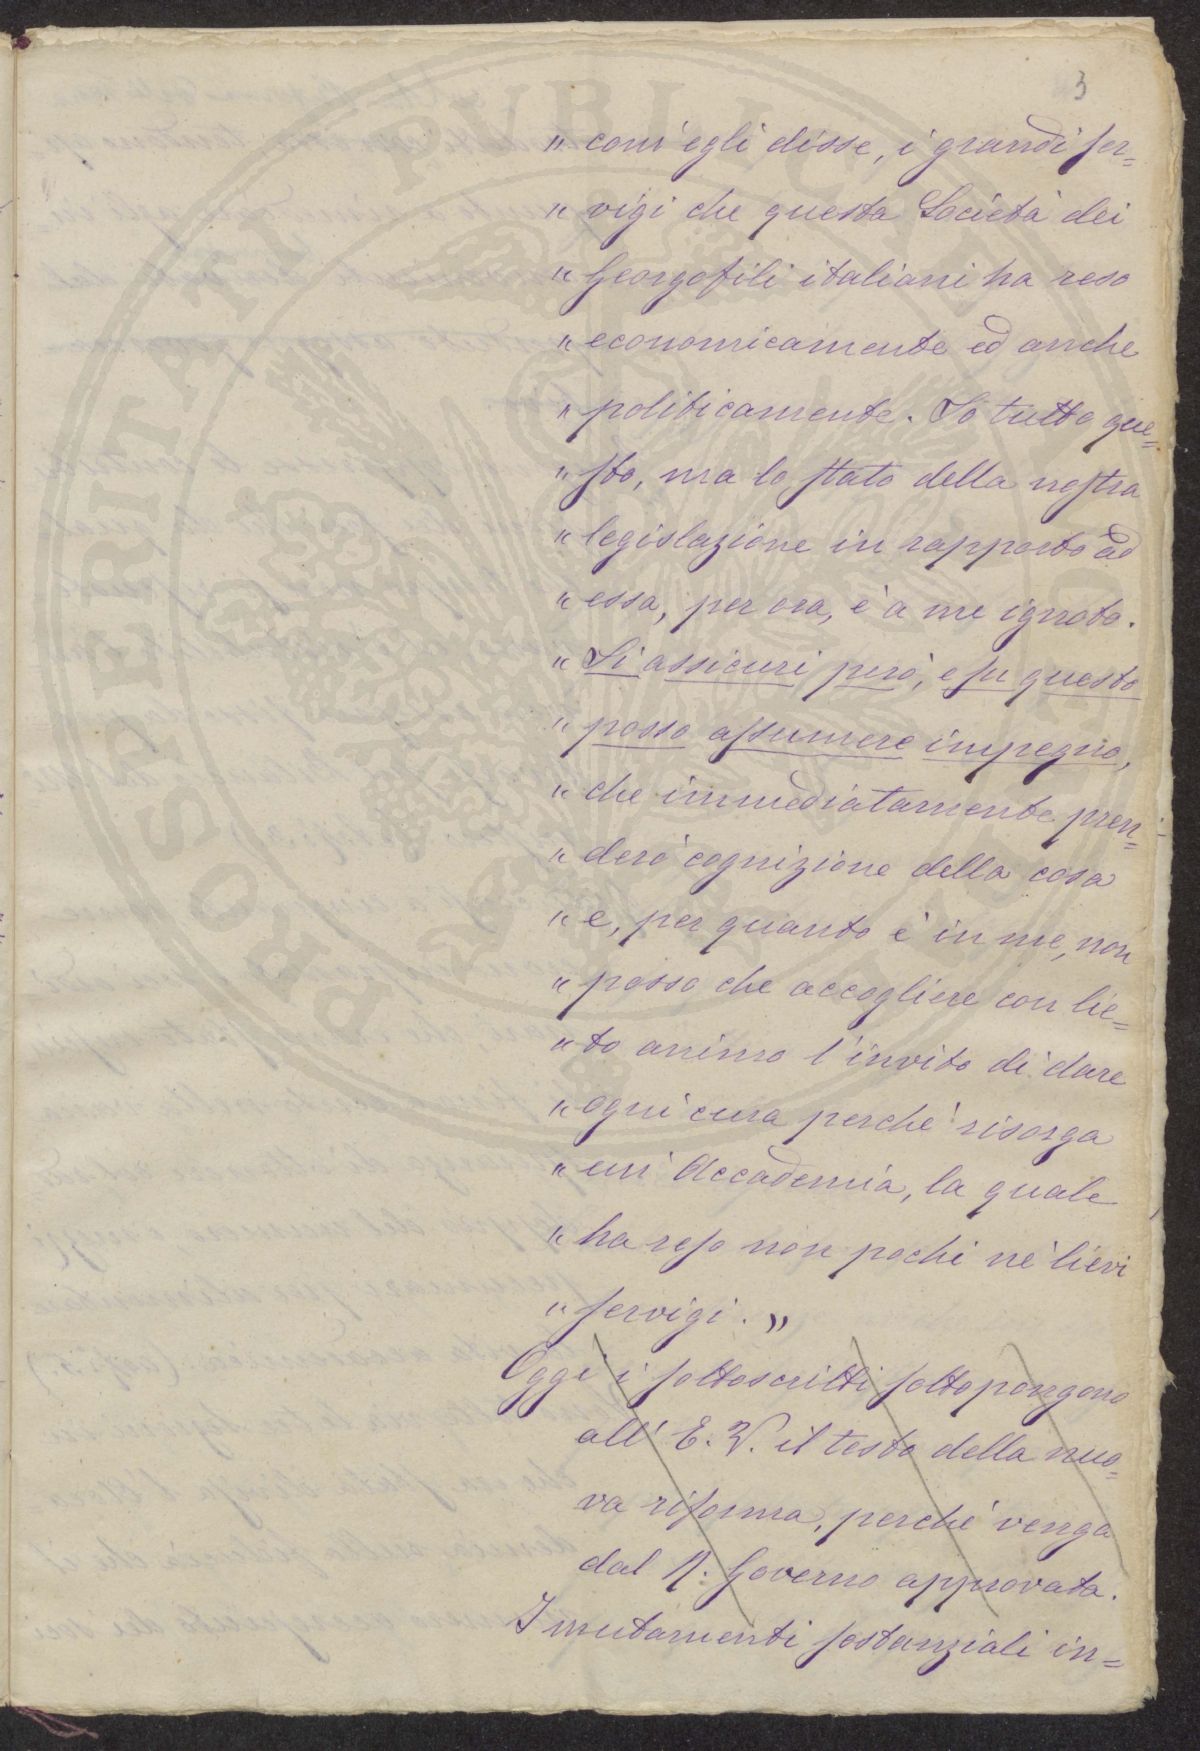 3
" com'egli disse, i grandi ser=
" vigi che questa Società dei
" Georgofili italiani ha reso
" economicamente ed anche
" politicamente. So tutto que=
" sto, ma lo stato della nostra
" legislazione in rapporto ad
" essa, per ora, è a me ignoto.
" Si assicuri però, e su questo
" posso assumere impegno,
" che immediatamente pren=
" derò cognizione della cosa
" e, per quanto è in me, non
" posso che accogliere con lie=
" to animo l'invito di dare
" ogni cura perchè risorga
" un'Accademia, la quale
" ha reso non pochi nè lievi
" servigi. "
Oggi i sottoscritti sottopongono
all'E. V. il testo della nuo=
va riforma, perchè venga
dal R. Governo approvata.
I mutamenti sostanziali in=
PROSPERITATI PVBLICAE